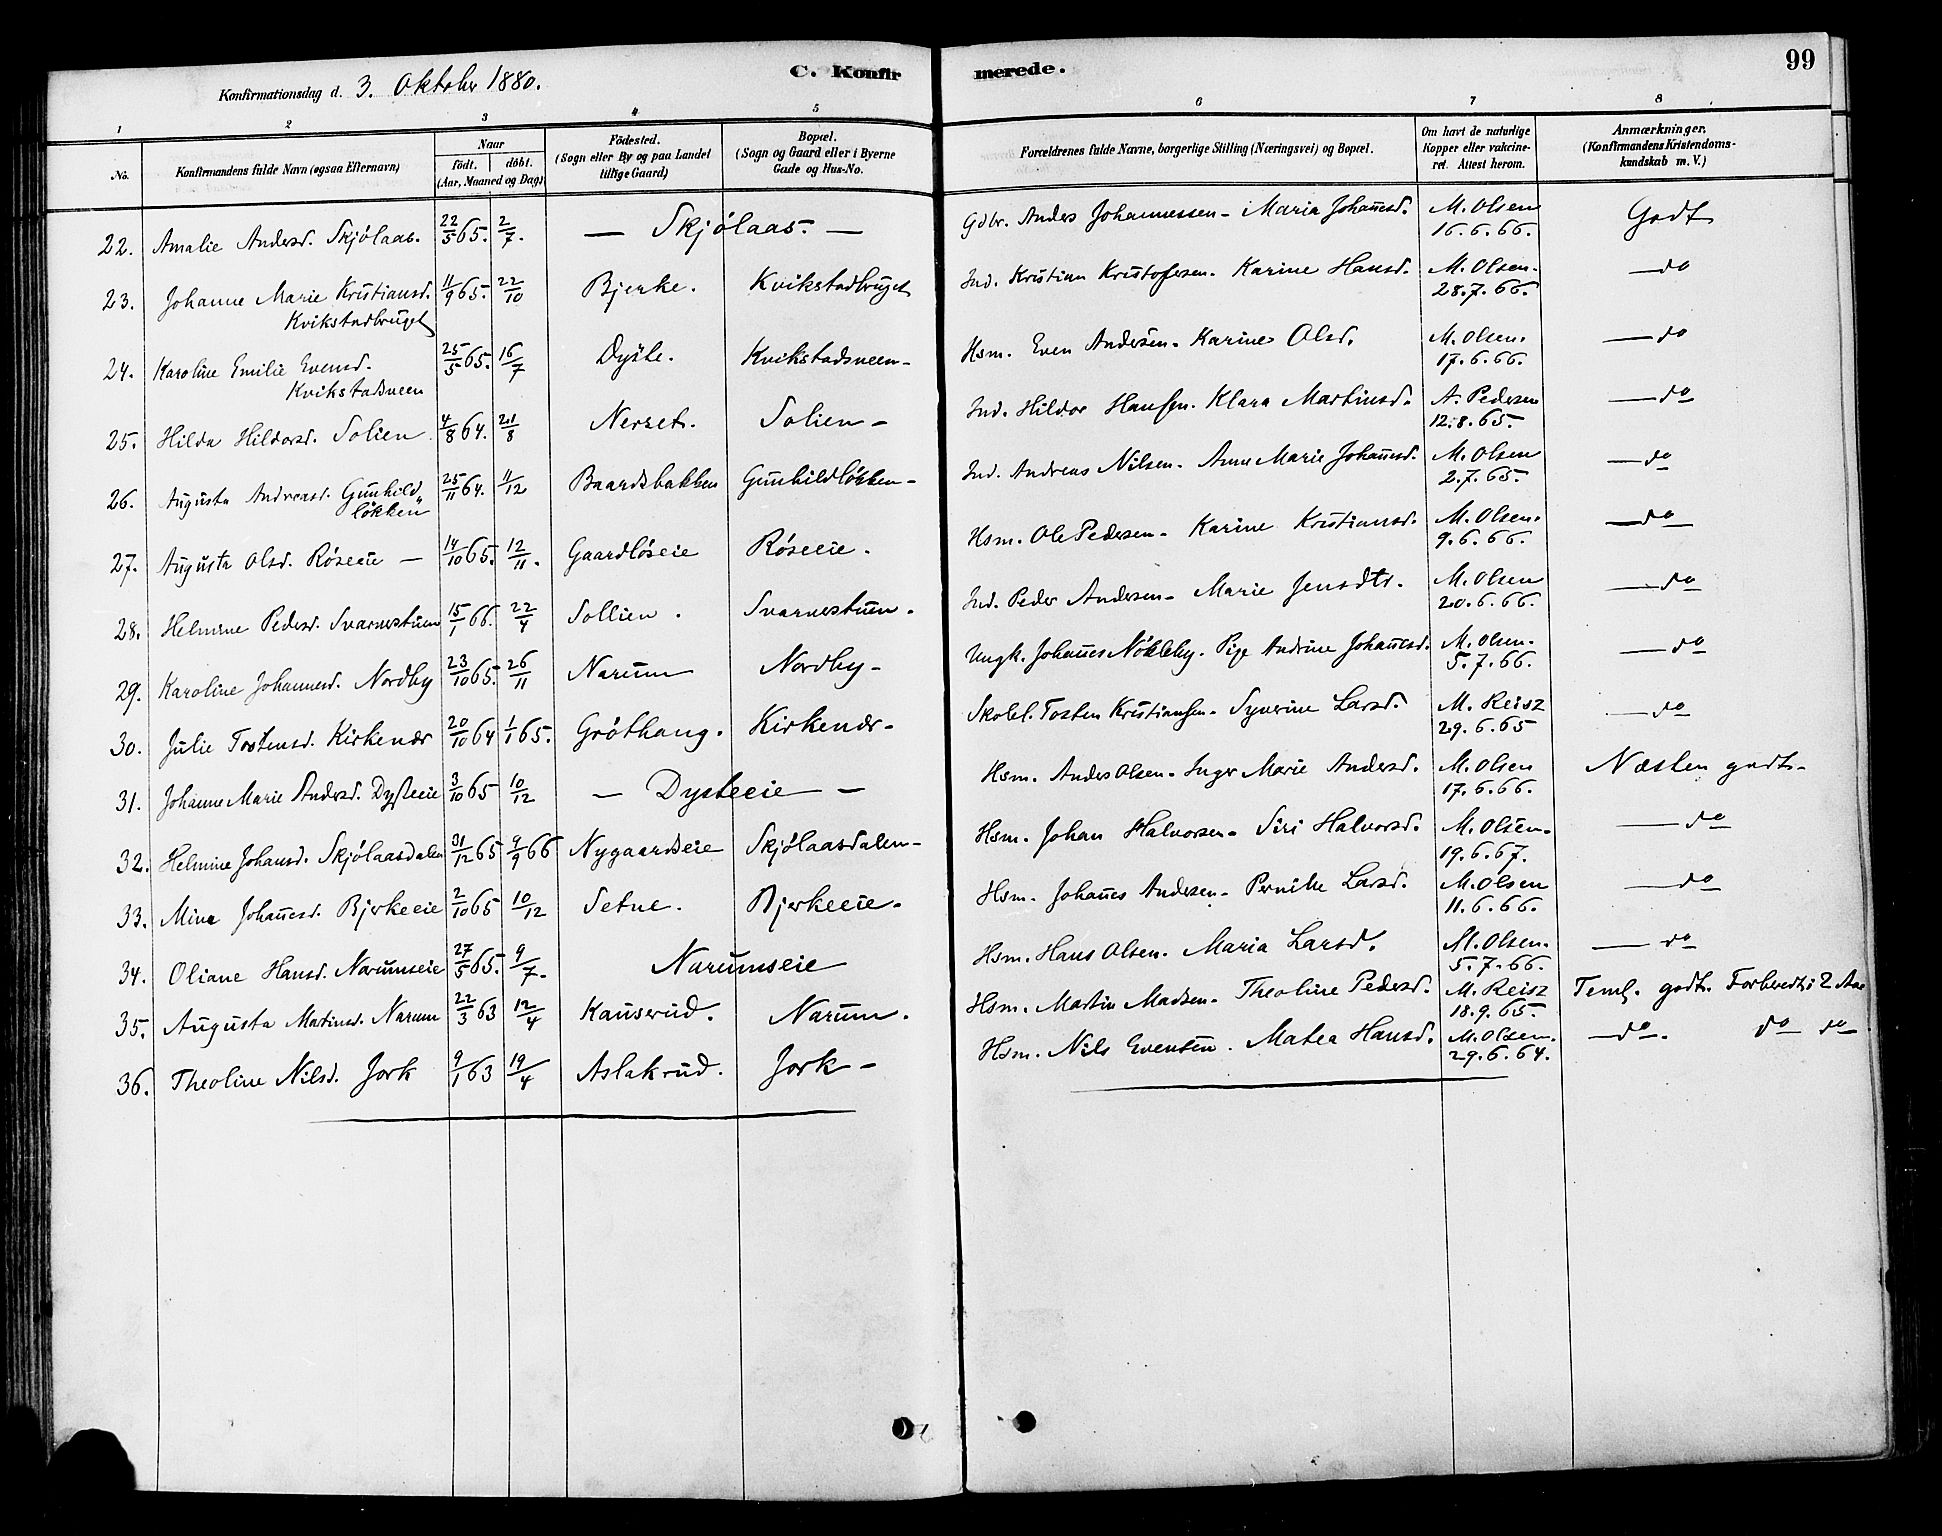 Konfirmationsdag d. 3. Oktober 1880.
C. Konfirmerede.
99
1 2 3 4 5 6 7 8
No. Konfirmandens fulde Navn (ogsaa Efternavn) Naar födt. döbt. (Aar, Maaned og Dag) Födested. (Sogn eller By og paa Landet tillige Gaard) Bopæl. (Sogn og Gaard eller i Byerne Gade og Hus-No. Forældrenes fulde Navne, borgerlige Stilling (Næringsvei) og Bopæl. Om havt de naturlige Kopper eller vakcineret. Attest herom. Anmærkninger. (Konfirmandens Kristendomskundskab m. V.)
22. Amalie Andersd. Skjölaas. 22/5 65. 2/7. — Skjölaas. — Gdbr. Anders Johannessen - Maria Johan̄esd. M. Olsen 16.6.66. Godt
23. Johanne Marie Kristiansd. Kvikstadbruget 11/9 65. 22/10 Bjerke. Kvikstadbruget Ind. Kristian Kristofersen. Karine Hansd. M. Olsen. 28.7.66. — do
24. Karoline Emilie Evensd. Kvikstadsveen 25/5 65. 16/7 Dyste. Kvikstadsveen - Hsm. Even Andersen. Karine Olsd. M. Olsen. 17.6.66. — do
25. Hilda Hildorsd. Solien 4/8 64. 21/8 Nerset. Solien - Ind. Hildor Hansen. Klara Martinsd. A. Pedersen 12.8.65. — do
26. Augusta Andreasd. Gunhildlökken 25/11 64. 11/12 Baardsbakken Gunhildlökken - Ind. Andreas Nilsen. Anne Marie Johan̄esd. M. Olsen 2.7.65. — do
27. Augusta Olsd. Röseeie — 14/10 65. 12/11. Gaardlöseie Röseeie. Hsm. Ole Pedersen. Karine Kristiansd. M. Olsen. 9.6.66. — do
28. Helmine Pedersd. Svarverstuen 15/1 66. 22/4 Sollien. Svarverstuen. Ind. Peder Andersen - Marie Jensdtr. M. Olsen 20.6.66. — do
29. Karoline Johannesd. Nordby 23/10 65. 26/11 Narum Nordby - Ungk. Johan̄es Nökleby. Pige Andrine Johan̄esd. M. Olsen. 5.7.66. — do
30. Julie Tostensd. Kirkenær 20/10 64 1/1 65. Gröthaug. Kirkenær - Skolel. Tosten Kristiansen. Syverine Larsd. M. Reisz 29.6.65 — do
31. Johanne Marie Andersd. Dysteeie 3/10 65 10/12 — Dysteeie — Hsm. Anders Olsen - Inger Marie Andersd. M. Olsen 17.6.66. Næsten godt -
32. Helmine Johansd. Skjölaasdalen 31/12 65 9/9 66 Nygaardseie Skjölaasdalen - Hsm. Johan Halvorsen - Siri Halvorsd. M. Olsen. 19.6.67. — do
33. Mina Johan̄esd. Bjerkeeie 2/10 65 10/12 Setne. Bjerkeeie. Hsm. Johan̄es Andersen - Pernille Larsd. M. Olsen 11.6.66. — do
34. Oliane Hansd. Narumseie 27/5 65. 9/7. Narumseie Hsm. Hans Olsen. Maria Larsd. M. Olsen. 5.7.66. — do
35. Augusta Martinsd. Narum 22/3 63 12/4 Kauserud. Narum. Hsm. Martin Madsen. Theoline Pedersd. M. Reisz 18.9.65. Teml. godt. Forberedt i 2 Aar
36. Theoline Nilsd. Jork 9/1 63 19/4 Aslakrud. Jork - Hsm. Nils Evensen. Matea Hansd. M. Olsen. 29.6.64. — do. do do